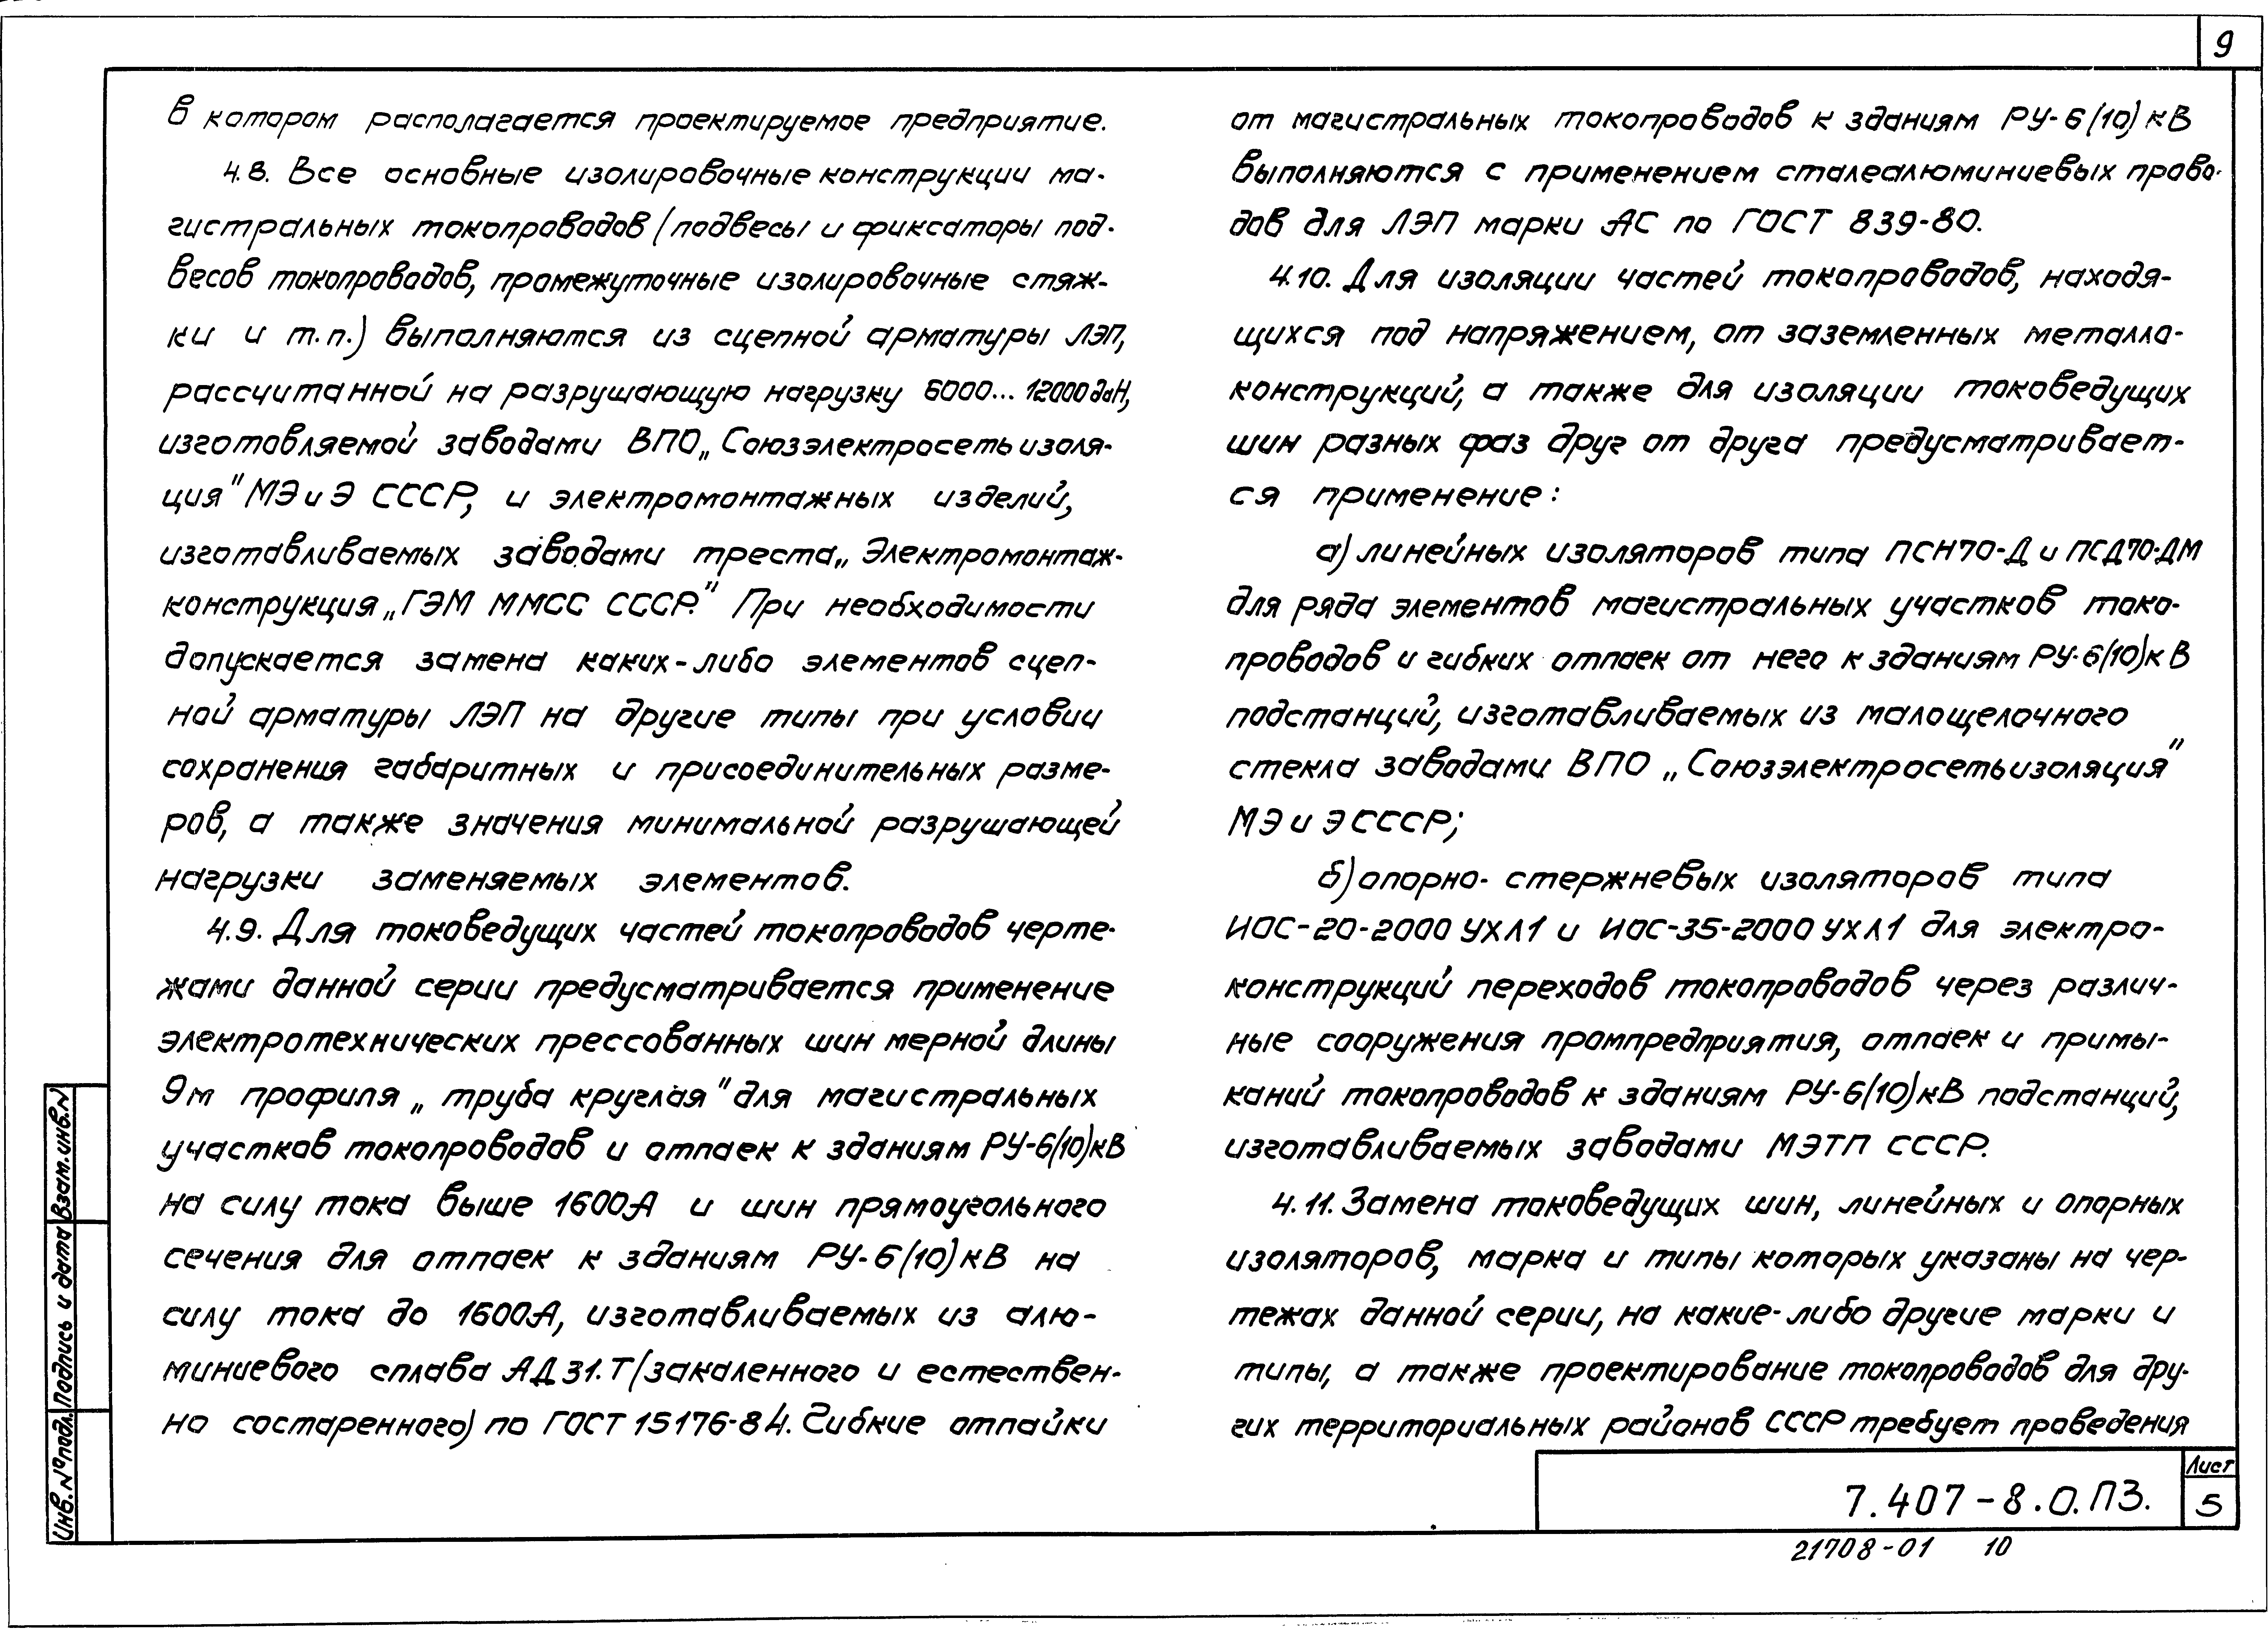 9
в котором располагается проектируемое предприятие.
4.8. Все основные изолировочные конструкции ма-
гистральных токопроводов (подвесы и фиксаторы под-
весов токопроводов, промежуточные изолировочные стяж-
ки и т.п.) выполняются из сцепной арматуры ЛЭП,
рассчитанной на разрушающую нагрузку 6000... 12000 даН,
изготовляемой заводами ВПО „Союзэлектросетьизоля-
ция" МЭ и Э СССР, и электромонтажных изделий,
изготавливаемых заводами треста „Электромонтаж-
конструкция „ГЭМ ММСС СССР." При необходимости
допускается замена каких-либо элементов сцеп-
ной арматуры ЛЭП на другие типы при условии
сохранения габаритных и присоединительных разме-
ров, а также значения минимальной разрушающей
нагрузки заменяемых элементов.
4.9. Для токоведущих частей токопроводов черте-
жами данной серии предусматривается применение
электротехнических прессованных шин мерной длины
9м профиля „труба круглая" для магистральных
участков токопроводов и отпаек к зданиям РУ-6(10)кВ
на силу тока выше 1600А и шин прямоугольного
сечения для отпаек к зданиям РУ-6(10)кВ на
силу тока до 1600А, изготавливаемых из алю-
миниевого сплава АД31.Т (закаленного и естествен-
но состаренного) по ГОСТ 15176-84. Гибкие отпайки
от магистральных токопроводов к зданиям РУ-6(10)кВ
выполняются с применением сталеалюминиевых прово-
дов для ЛЭП марки АС по ГОСТ 839-80.
4.10. Для изоляции частей токопроводов, находя-
щихся под напряжением, от заземленных металло-
конструкций, а также для изоляции токоведущих
шин разных фаз друг от друга предусматривает-
ся применение:
а) линейных изоляторов типа ПСН70-Д и ПСД70-ДМ
для ряда элементов магистральных участков токо-
проводов и гибких отпаек от него к зданиям РУ-6(10)кВ
подстанций, изготавливаемых из малощелочного
стекла заводами ВПО „Союзэлектросетьизоляция"
МЭ и Э СССР;
б) опорно-стержневых изоляторов типа
ИОС-20-2000 УХЛ1 и ИОС-35-2000 УХЛ1 для электро-
конструкций переходов токопроводов через различ-
ные сооружения промпредприятия, отпаек и примы-
каний токопроводов к зданиям РУ-6(10)кВ подстанций,
изготавливаемых заводами МЭТП СССР.
4.11. Замена токоведущих шин, линейных и опорных
изоляторов, марка и типы которых указаны на чер-
тежах данной серии, на какие-либо другие марки и
типы, а также проектирование токопроводов для дру-
гих территориальных районов СССР требует проведения
Инв. № подл. Подпись и дата Взам. инв. N
7.407-8.0.ПЗ.
Лист
5
21708-01 10